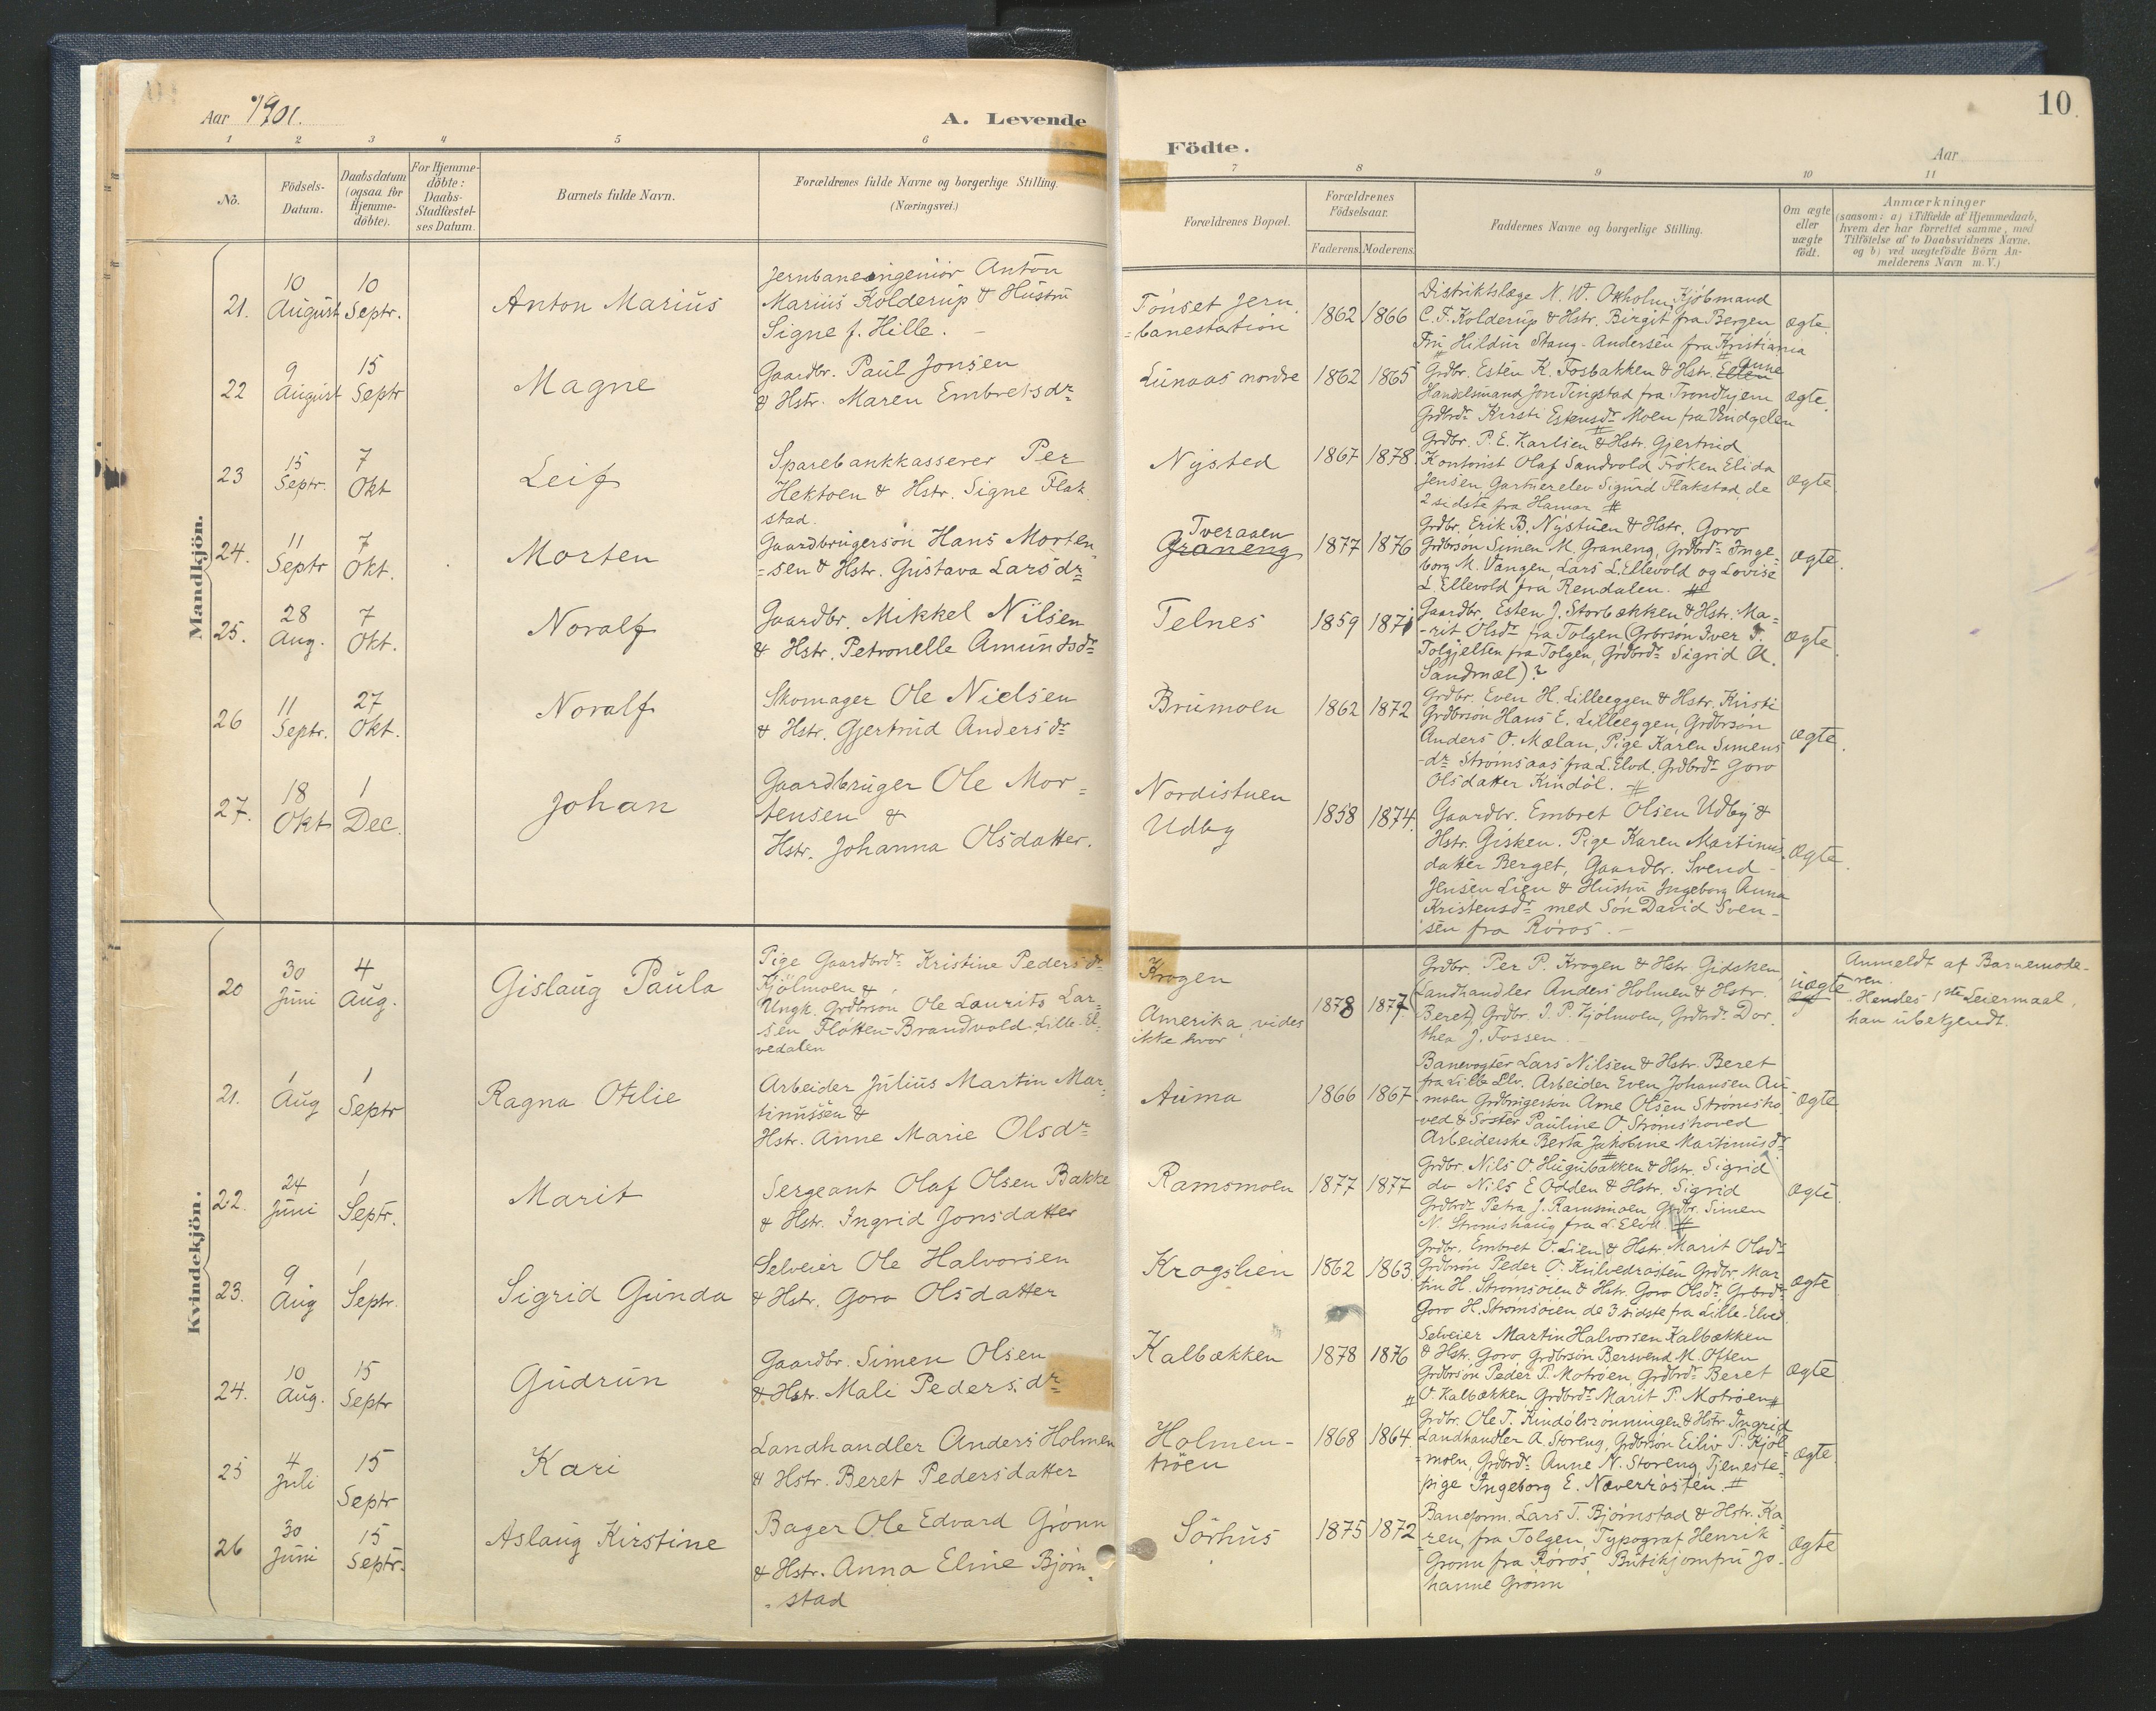 Aar 1901.
A. Levende
Födte.
Aar
10.
1 2 3 4 5 6 7 8 9 10 11
No.
Födsels-
Datum.
Daabsdatum
(ogsaa for
Hjemme-
döbte).
For Hjemme-
döbte:
Daabs-
Stadfæstel-
ses Datum.
Barnets fulde Navn.
Forældrenes fulde Navne og borgerlige Stilling.
(Næringsvei.)
Forældrenes Bopæl.
Forældrenes
Födselsaar.
Faderens. Moderens.
Faddernes Navne og borgerlige Stilling.
Om ægte
eller
uægte
födt.
Anmærkninger
(saasom: a) i Tilfælde af Hjemmedaab,
hvem der har forrettet samme, med
Tilföielse af to Daabsvidners Navne,
og b) ved uægtefödte Börn An-
melderens Navn m. V.)
Mandkjön.
21.
10
August
10
Septr.
Anton Marius
Jernbaneingeniör Anton
Marius Kolderup & Hustru
Signe f. Hille.
Tönset Jern
=banestation
1862 1866
Distriktslæge N. W. Okholm, Kjöbmand
C. F. Kolderup & Hstr. Birgit fra Bergen
Fru Hildur Stang-Andersen fra Kristiania
ægte.
22
9
August
15
Septr
Magne
Gaardbr. Paul Jonsen
& Hstr. Maren Embretsdr
Lunaas nordre
1862 1865
Grdbr. Esten K. Fosbakken & Hstr. Ellen Anne
Handelsmand Jon Tingstad fra Trondhjem
Grdbrdr Kirsti Estensdr Moen fra Vindgelen
ægte.
23
15
Septr.
7
Okt
Leif
Sparebankkasserer Per
Hektoen & Hstr. Signe Flak
stad.
Nysted
1867 1878
Grdbr. P. E. Karlsen & Hstr. Gjertrud
Kontorist Olaf Sandvold Fröken Elida
Jensen Gartnerelev Sigurd Flakstad, de
2 sidste fra Hamar #
ægte.
24.
11
Septr
7
Okt.
Morten
Gaardbrugersön Hans Morten
=sen & Hstr. Gustava Larsdr
Tveraaen
Graneng
1877 1876
Grdbr. Erik B. Nystuen & Hstr. Goro
Grdbrsön Simen M. Graneng, Grdbrdr Inge-
borg M. Vangen, Lars L. Ellevold og Lovise
L. Ellevold fra Rendalen. #
ægte.
25.
28
Aug.
7
Okt.
Noralf
Gaardbr. Mikkel Nilsen
& Hstr. Petronelle Amundsdr
Telnes
1859 1871
Gaardbr. Esten J. Storbækken & Hstr. Ma=
-rit Olsdr fra Tolgen (Grbrsön Iver T.
Tolgjelten fra Tolgen, Grdbrdr Sigrid A.
Sandmæl)?
ægte.
26
11
Septr.
27
Okt.
Noralf
Skomager Ole Nielsen
& Hstr. Gjertrud Andersdr
Brumoen
1862 1872
Grdbr. Even H. Lilleeggen & Hstr. Kirsti
Grdbrsön Hans E. Lilleeggen, Grdbrsön
Anders O. Mælan, Pige Karen Simens
-dr Strömsaas fra L. Elvd. Grdbrdr Goro
Olsdatter Kindöl. #
ægte.
27.
18
Okt
1
Dec.
Johan
Gaardbruger Ole Mor=
tensen &
Hstr. Johanna Olsdatter.
Nordistuen
Udby
1858 1874.
Gaardbr. Embret Olsen Udby &
Hstr. Gisken. Pige Karen Martinus
datter Berget, Gaardbr. Svend
Jensen Lien & Hustru Ingeborg Anna
Kristensdr med Sön David Sven-
sen fra Röros.
Ægte.
Kvindekjön.
20
30
Juni
4
Aug.
Gislaug Paula
Pige Gaardbrdr Kristine Pedersdr
Kjölmoen &
Ungk. Grdbrsön Ole Laurits Lar=
sen Flötten-Brandvold-Lille-El=
vedalen
Krogen
Amerika, vides
ikke hvor
1878 1877
Grdbr. Per P. Krogen & Hstr Gidsken
(Landhandler Anders Holmen & Hstr.
Beret) Grdbr. I. P. Kjölmoen, Grdbrdr Dor
thea J. Fossen
uægte
Anmeldt af Barnemode-
ren.
Hendes 1ste Leiermaal,
han ubekjendt.
21.
1
Aug
1
Septr
Ragna Otilie
Arbeider Julius Martin Mar=
tinussen &
Hstr. Anne Marie Olsdr
Auma
1866 1867
Banevogter Lars Nilsen & Hstr. Beret
fra Lille Elv. Arbeider Even Johansen Au
moen Grdbrugersön Arne Olsen Strömsho
ved & Söster Pauline O Strömshoved
Arbeiderske Berta Jakobine Martinusdr
Ægte
22.
24
Juni
1
Septr.
Marit
Sergeant Olaf Olsen Bakke
& Hstr. Ingrid Jonsdatter
Ramsmoen
1877 1877
Grdbr. Nils O. Hugubakken & Hstr. Sigrid
do Nils E Odden & Hstr. Sigrid
Grdbrdr Petra J. Ramsmoen Grdbr. Simen
N. Strömshaug fra L. Elvd. #
Ægte.
23.
9
Aug
1
Septr.
Sigrid Gunda
Selveier Ole Halvorsen
& Hstr. Goro Olsdatter
Krogslien
1862 1863
Grdbr. Embret O. Lien & Hstr. Marit Olsdr
Grdbrsön Peder O. Kulvedrösten Grdbr. Mar
tin H. Strömsöien & Hstr. Goro Olsdr Grbrdr
Goro H. Strömsöien de 3 sidste fra Lille-Elved
Ægte
24.
10
Aug.
15
Septr
Gudrun
Gaardbr. Simen Olsen
& Hstr. Mali Pedersdr
Kalbækken
1878 1876
Selveier Martin Halvorsen Kalbækken
& Hstr. Goro Grdbrsön Bersvend M. Often
Grdbrsön Peder P. Moträen, Grdbrdr Beret
O. Kalbækken Grdbrdr Marit P. Motröen #
Ægte
25
4
Juli
15
Septr
Kari
Landhandler Anders Holmen
& Hstr. Beret Pedersdatter
Holmen-
tröen
1868 1864.
Grdbr. Ole T. Kindölsrönningen & Hstr Ingrid
Landhandler A. Storeng, Grdbrsön Eiliv P. Kjöl
=moen, Grdbrdr Anne N. Storeng, Tjeneste-
pige Ingeborg E. Næverrösten. #
Ægte.
26
30
Juni
15
Septr.
Aslaug Kirstine
Bager Ole Edvard Grönn
& Hstr. Anna Eline Bjørn
=stad
Sörhus
1875 1872
Baneform. Lars T. Bjørnstad & Hstr. Ka-
ren, fra Tolgen, Typograf Henrik
Grönn fra Röros, Butikjomfru Jo-
hanne Grönn
Ægte